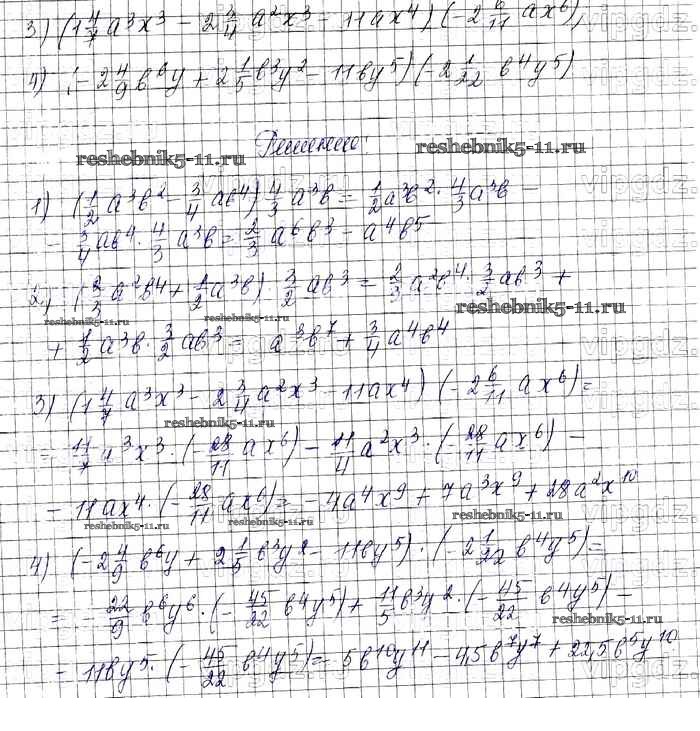 3) (1 4/7 a³x³ − 2 3/4 a²x³ − 11ax⁴)(−2 6/11 ax⁶);
4) (−2 4/9 b⁶y + 2 1/5 b³y² − 11by⁵)(−2 1/22 b⁴y⁵)
Решение:
reshebnik5-11.ru reshebnik5-11.ru
1) (1/2 a³b² − 3/4 ab⁴) 4/3 a³b = 1/2 a³b² · 4/3 a³b −
− 3/4 ab⁴ · 4/3 a³b = 2/3 a⁶b³ − a⁴b⁵
2) (2/3 a²b⁴ + 1/2 a³b) · 3/2 ab³ = 2/3 a²b⁴ · 3/2 ab³ +
reshebnik5-11.ru reshebnik5-11.ru reshebnik5-11.ru
+ 1/2 a³b · 3/2 ab³ = a³b⁷ + 3/4 a⁴b⁴
3) (1 4/7 a³x³ − 2 3/4 a²x³ − 11ax⁴)(−2 6/11 ax⁶) =
reshebnik5-11.ru
= 11/7 a³x³ · (−28/11 ax⁶) − 11/4 a²x³ · (−28/11 ax⁶) −
− 11ax⁴ · (−28/11 ax⁶) = −4a⁴x⁹ + 7a³x⁹ + 28a²x¹⁰
reshebnik5-11.ru reshebnik5-11.ru reshebnik5-11.ru
4) (−2 4/9 b⁶y + 2 1/5 b³y² − 11by⁵) · (−2 1/22 b⁴y⁵) =
= −22/9 b⁶y⁶ · (−45/22 b⁴y⁵) + 11/5 b³y² · (−45/22 b⁴y⁵) −
reshebnik5-11.ru
− 11by⁵ · (−45/22 b⁴y⁵) = 5b¹⁰y¹¹ − 4,5b⁷y⁷ + 22,5b⁵y¹⁰